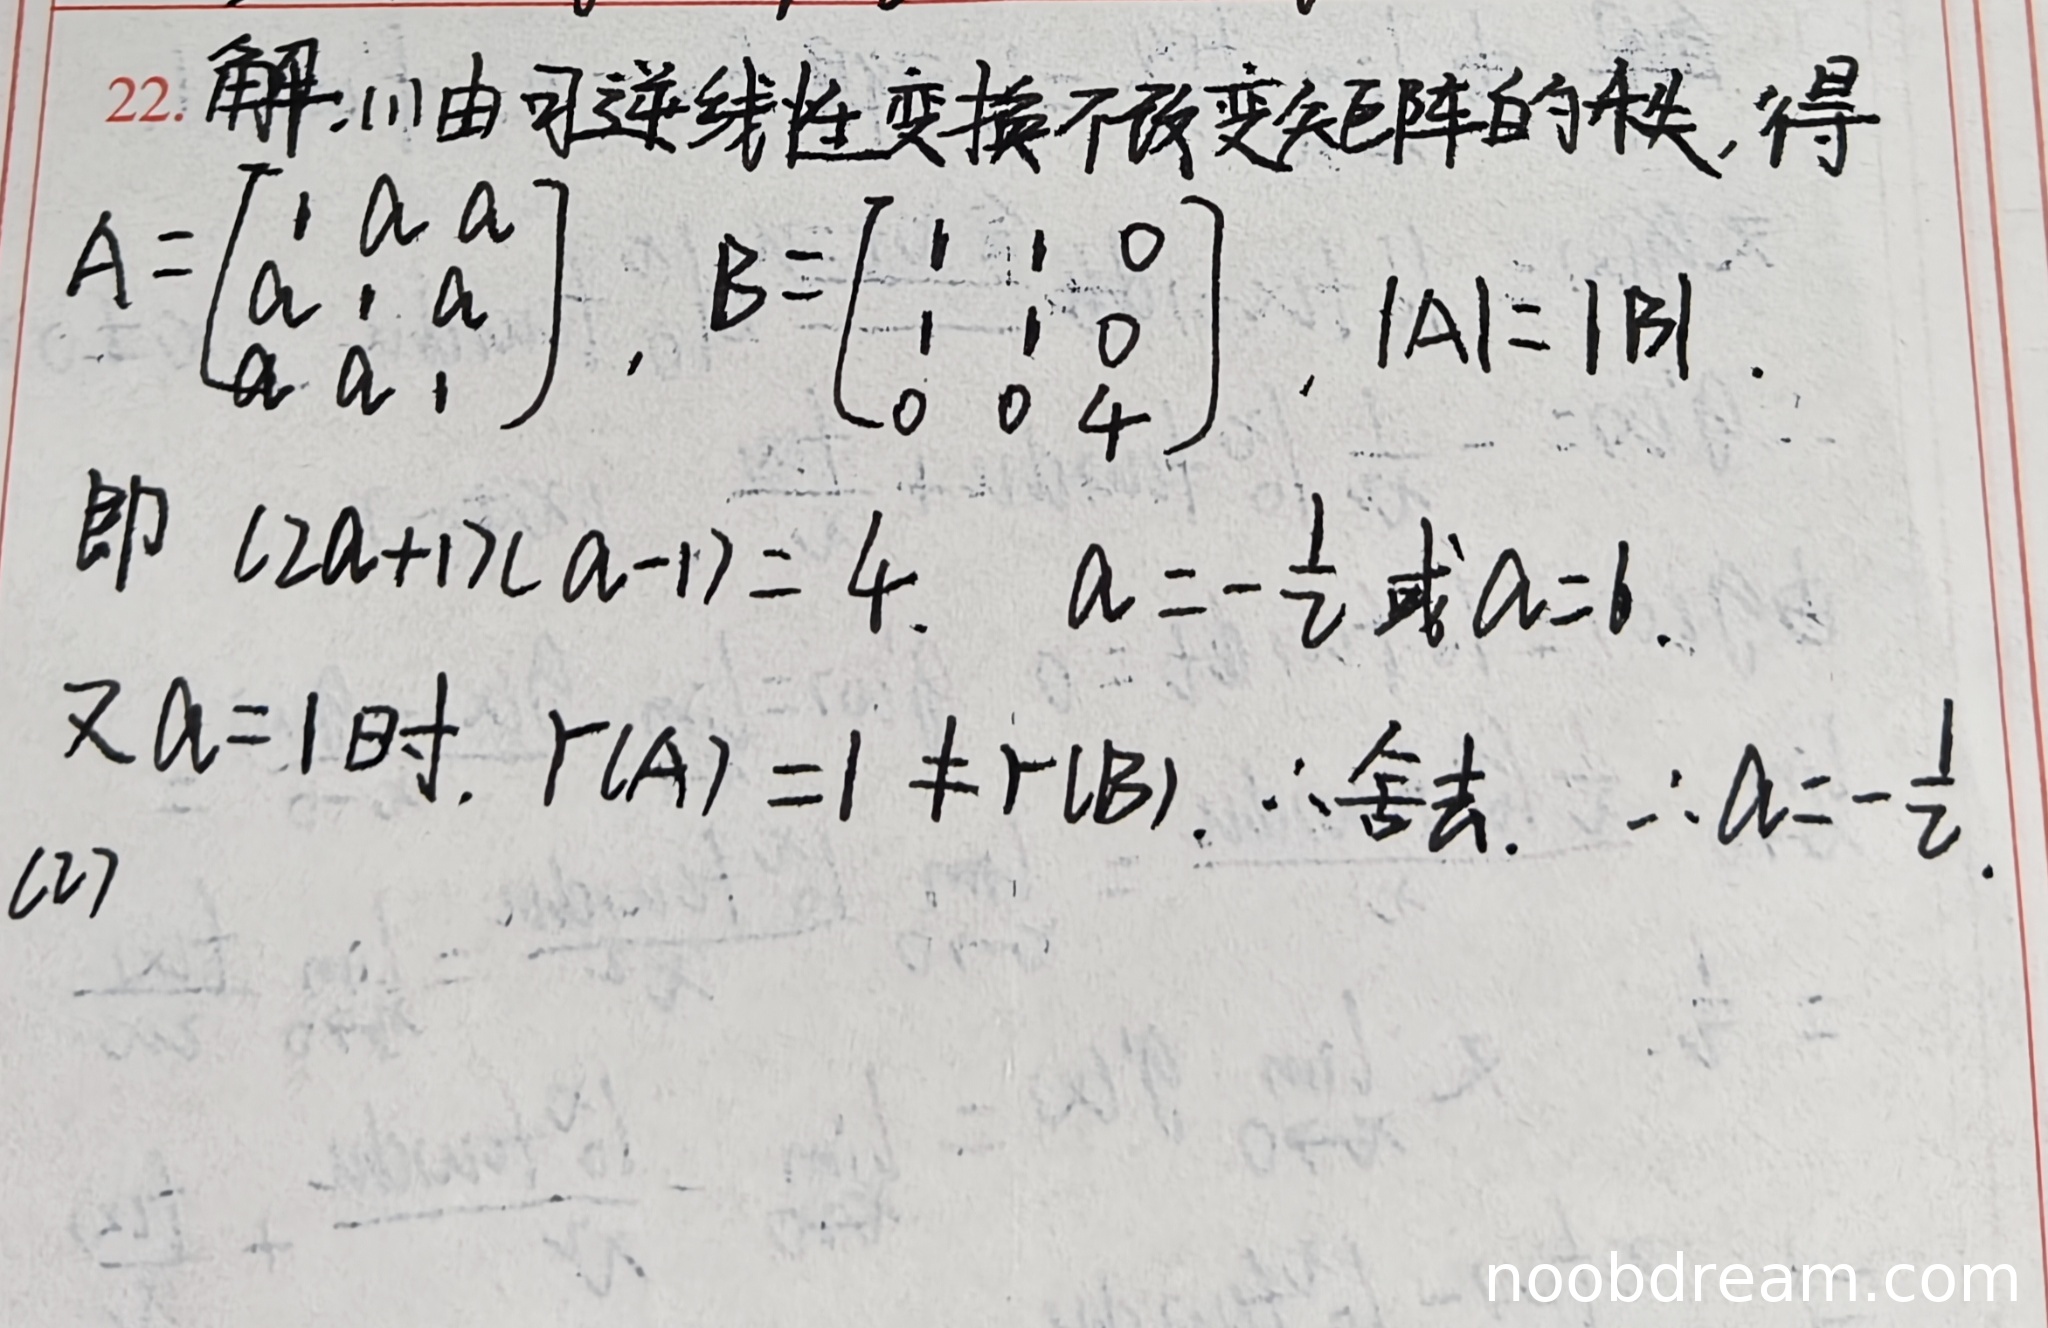 22. 解.(1)由可逆线性变换不改变矩阵的秩,得
A = [1 a a
a 1 a
a a 1], B = [1 1 0
1 1 0
0 0 4], |A| = |B|.
即 (2a+1)(a-1) = 4. a = -1/2 或 a = 1.
又 a = 1 时. r(A) = 1 ≠ r(B). ∴舍去. ∴ a = -1/2.
(2)
noobdream.com